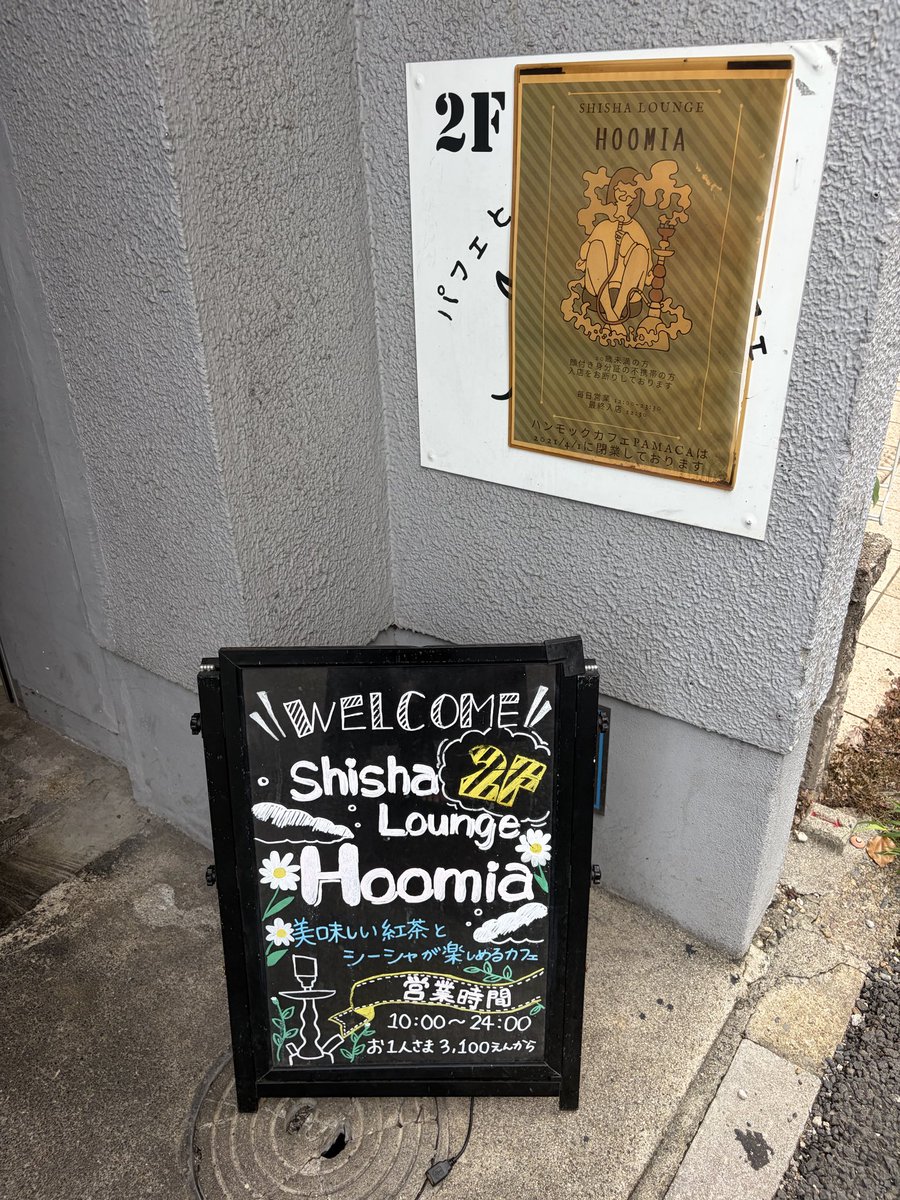 2F
パフェと
SHISHA LOUNGE
HOOMIA
20歳未満の方
顔付き身分証の不携帯の方
入店をお断りしております
毎日営業 12:00~23:30
最終入店 22:30
ハンモックカフェPAMACAは
2021/4/1に閉業しております
WELCOME
Shisha 2F
Lounge
Hoomia
美味しい紅茶と
シーシャが楽しめるカフェ
営業時間
10:00～24:00
お1人さま3,100えんから